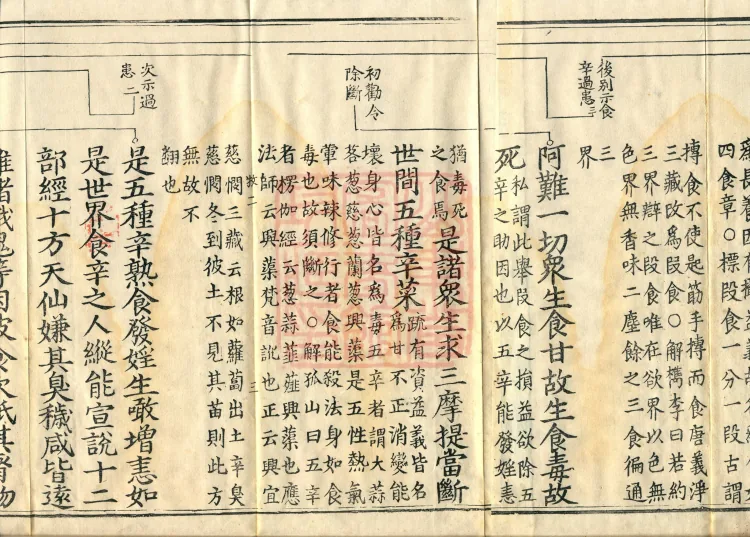 四食章○標段食一分一段古謂
摶食不使是筋手摶而食唐義淨
三藏改爲叚食○解㩦李曰若約
三界辯之叚食唯在欲界以色無
色界無香味二塵餘之三食徧通
三
界
後別示食
辛過患三
阿難一切衆生食甘故生食毒故
死
私謂此舉叚食之損益欲除五
辛之助因也以五辛能發婬恚
猶毒死
之食焉
是諸衆生求三摩提當斷
初勸令
除斷
世間五種辛菜
䟽有資益義皆名
爲甘不正消變能
壞身心皆名爲毒五辛者謂大蒜
茖葱慈葱蘭葱興蕖是五性熱氣
葷味辣修行者食能殺法身如食
毒也故須斷之○解孤山曰五辛
者楞伽經云葱蒜韮薤興蕖也應
法師云興蕖梵音訛也正云興宜
三
慈愍三藏云根如蘿蔔出土辛臭
慈愍冬到彼土不見其苗則此方
無故不
翻也
次示過
患二
是五種辛熟食發婬生噉增恚如
是世界食辛之人縱能宣說十二
部經十方天仙嫌其臭穢咸皆遠